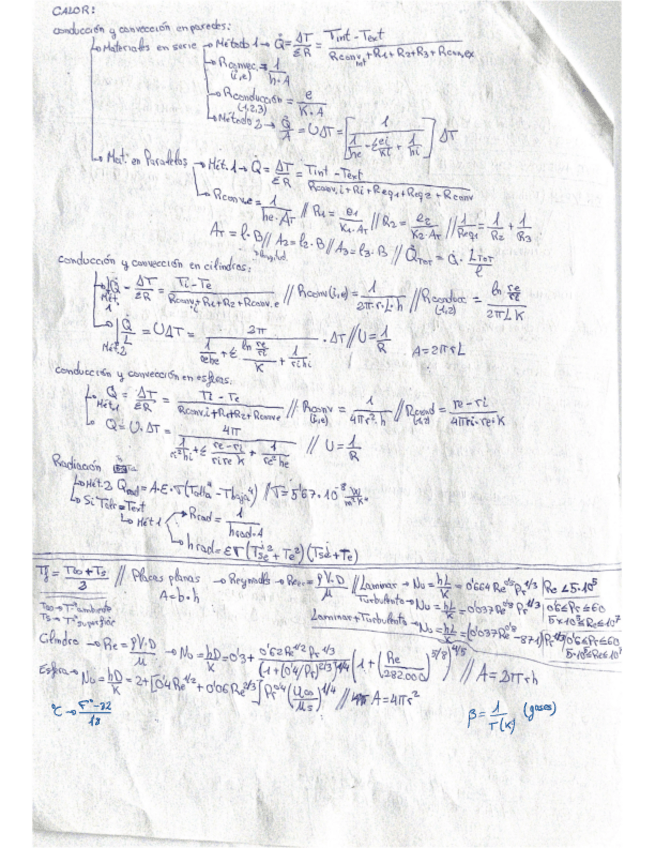 CALOR:
conducción y convección en paredes:
Materiales en serie → Método 1 → Q̇ = ΔT/ΣR = (Tint - Text)/(Rconv int + R1 + R2 + R3 + Rconv ex)
Rconvec (i,e) = 1/(h·A)
Rconducción (1,2,3) = e/(K·A)
Método 2 → Q̇/A = UΔT = [1/(1/he + Σ ei/Ki + 1/hi)] ΔT
Mat. en Paralelos → Mét. 1 → Q̇ = ΔT/ΣR = (Tint - Text)/(Rconv,i + Ri + Req1 + Req2 + Rconv)
Rconv,e = 1/(he·AT) // R1 = e1/(K1·AT) // R2 = e2/(K2·A2) // 1/Req1 = 1/R2 + 1/R3
AT = l·B // A2 = l2·B // A3 = l3·B // Q̇TOT = Q̇·LTOT/l
longitud
conducción y convección en cilindros:
Mét. 1 Q̇ = ΔT/ΣR = (Ti - Te)/(Rconv,i + R1 + R2 + Rconv.e) // Rconv(i,e) = 1/(2π·r·L·h) // Rconducc (1,2) = ln(re/ri)/(2πLK)
Mét 2 Q̇/L = UΔT = 2π/(1/(rehe) + Σ ln(re/ri)/K + 1/(rihi)) · ΔT // U = 1/R A = 2πrL
conducción y convección en esferas:
Mét. 1 Q̇ = ΔT/ΣR = (Ti - Te)/(Rconv.i + R1 + R2 + Rconv e) // Rconv (i,e) = 1/(4πr²·h) // Rcond (1,2) = (re - ri)/(4πri·re·K)
Q = U·ΔT = 4π/(1/(ri²hi) + Σ (re - ri)/(ri re K) + 1/(re²he)) // U = 1/R
Radiación
Mét. 2 Q̇rad = A·ε·σ(Talta⁴ - Tbaja⁴) // σ = 5'67·10⁻⁸ W/m²K⁴
Si Talr = Text
Mét 1 → Rrad = 1/(hrad·A)
hrad = εσ(Tse² + Te²)(Tse + Te)
Tf = (T∞ + Ts)/2 // Placas planas → Reynolds → ReL = ρV·D/μ // Laminar → Nu = hL/K = 0'664 Re^0'5 Pr^1/3 | Re < 5·10⁵
A = b·h Turbulento → Nu = hL/K = 0'037 Re^0'8 Pr^1/3 | 0'6 ≤ Pr ≤ 60
5×10⁵ ≤ Re ≤ 10⁷
T∞ → Tª ambiente
Ts → Tª superficie
Laminar + Turbulento → Nu = hL/K = (0'037 Re^0'8 - 871) Pr^1/3 | 0'6 ≤ Pr ≤ 60
5·10⁵ ≤ Re ≤ 10⁷
Cilindro → Re = ρV·D/μ → Nu = hD/K = 0'3 + (0'62 Re^1/2 Pr^1/3)/(1 + (0'4/Pr)^2/3)^1/4 (1 + (Re/282.000)^5/8)^4/5 // A = 2πrh
Esfera → Nu = hD/K = 2 + [0'4 Re^1/2 + 0'06 Re^2/3] Pr^0'4 (μ∞/μs)^1/4 // A = 4πr²
°C → (F° - 32)/1'8
β = 1/T(K) (gases)